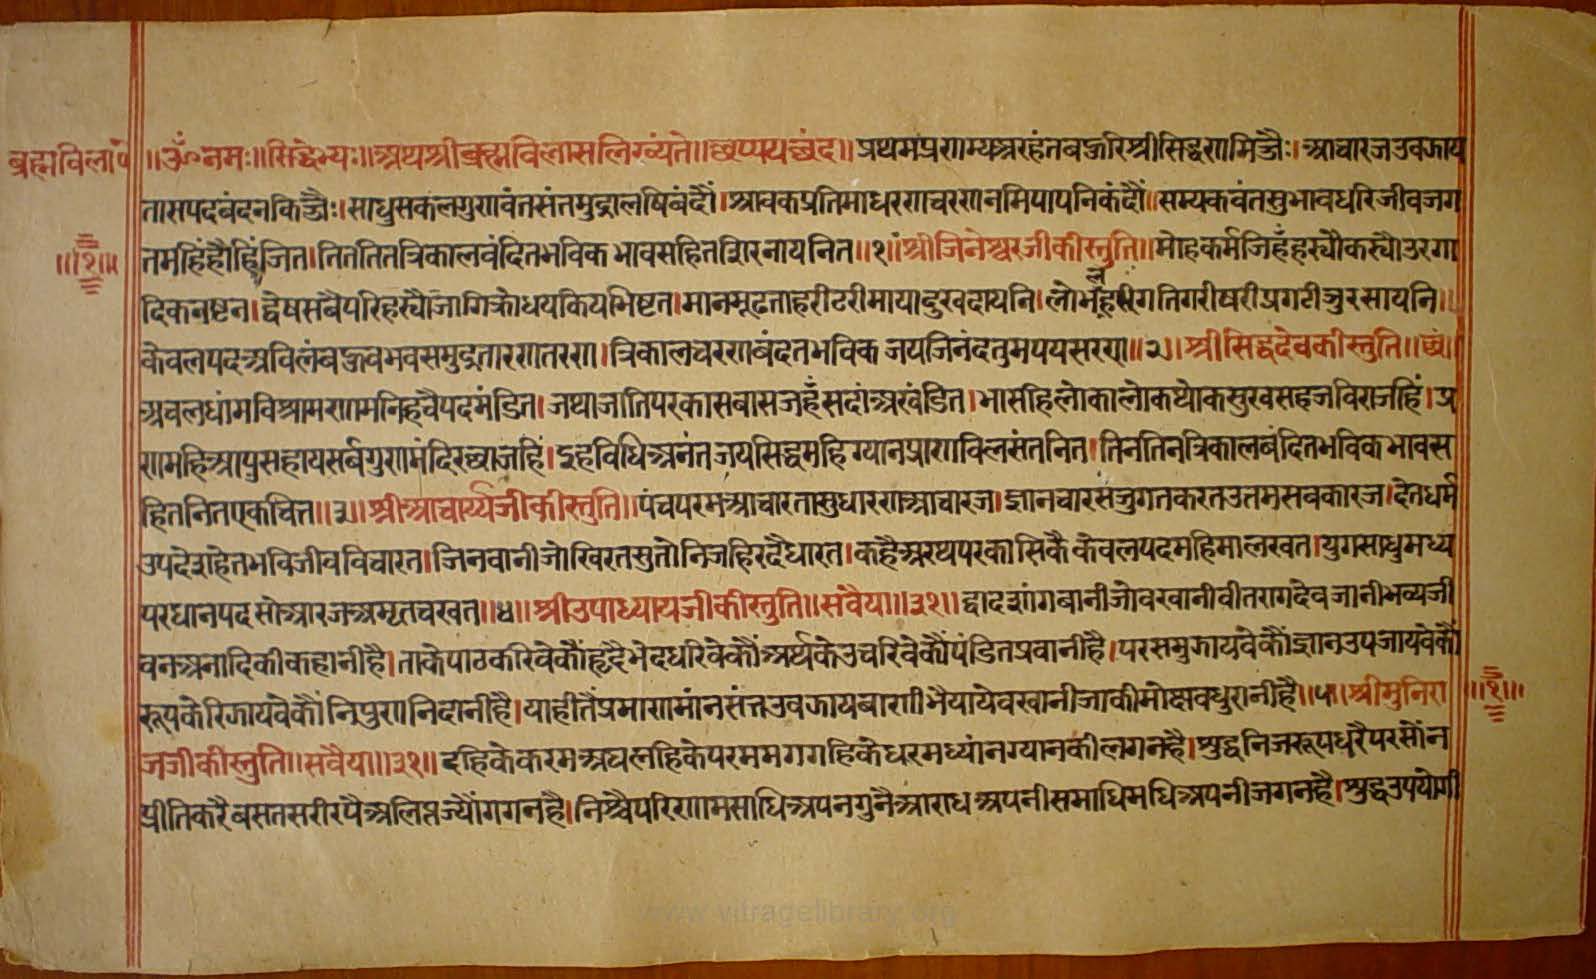 ब्रह्मविला॰
॥ॐनमः॥सिद्धेभ्यः॥अथश्रीब्रह्मविलासलिख्यंते॥छप्पयछंद॥प्रथमप्रणम्यअरहंतबहुरिश्रीसिद्धणमिज्जैः।आचारजउवझाय
तासपदवंदनकिज्जैः।साधुसकलगुणवंतसंतमुद्रालषिवंदौं।श्रावकप्रतिमाधरणचरणनमिपापनिकंदौं॥सम्यकवंतसुभावधरिजीवजग
॥१॥
तमहिंहौहिंजित।तिततितत्रिकालवंदितभविकभावसहितशिरनायनित॥१॥श्रीजिनेश्वरजीकीस्तुति॥मोहकर्मजिहँहर्यौकर्यौउरगा
दिकनष्टन।द्वेषसबैपरिहर्यौजागिक्रोधयकियभिष्टन।मानमूढताहरीटरीमायादुखदायनि।लोभलहरिगतिगरीषरीप्रगटीजुरसायनि।
केवलपदअविलंबहुवभवसमुद्रतारणतरण।त्रिकालचरणबंदतभविकजयजिनंदतुमपयसरण॥२॥श्रीसिद्धदेवकीस्तुति॥छं।
अचलधांमविश्रामणामनिहचैपदमंडित।जथाजातिपरकासबासजहँसदांअखंडित।भासहिलोकालोकथोकसुखसहजविराजहिं।प्र
णमहिआपुसहायसर्वगुणमंदिरछाजहिं।इहविधिअनंतजयसिद्धमहिग्यानप्राणविलसंतनित।तिनतिनत्रिकालबंदितभविकभावस
हितनितएकचित॥३॥श्रीआचार्य्यजीकीस्तुति॥पंचपरमआचारतासुधारणआचारज।ज्ञानचारसंजुगतकरतउतमसबकारज।देतधर्म
उपदेशहेतभविजीवविचारत।जिनवानीजोखिरतसुतोनिजहिरदैधारत।कहैअरथपरकासिकैकेवलपदमहिमालखत।युगसाधुमध्य
परधानपदसोआरजअमृतचखत॥४॥श्रीउपाध्यायजीकीस्तुति॥संवैया॥३१॥द्वादशांगबानीजोवखानीवीतरागदेवजानीभव्यजी
वनअनादिकीकहानीहै।ताकेपाठकरिवेकौंहृदैभेदधरिवेकौंअर्थकेउचरिवेकौंपंडितप्रवानीहै।परसमुझायवेकौंज्ञानउपजायवेकौं
रूपकेरिझायवेकौंनिपुणनिदानीहै।याहीतैंप्रमाणमांनसंतउवझायबाणीभैयायेवखानीजाकीमोक्षवधुरानीहै॥५॥श्रीमुनिरा
॥१॥
जजीकीस्तुति॥सवैया॥३१॥दहिकेकरमअघलहिकेपरममगगहिकेधरमध्यांनग्यानकीलगनहै।शुद्धनिजरूपधरैपरसौंन
प्रीतिकरैबसतसरीरपैअलिप्तज्यौंगगनहै।निश्चैपरिणामसाधिअपनगुनैआराधअपनीसमाधिमधिअपनीजगनहै।शुद्धउपयोगी
www.vitragelibrary.org